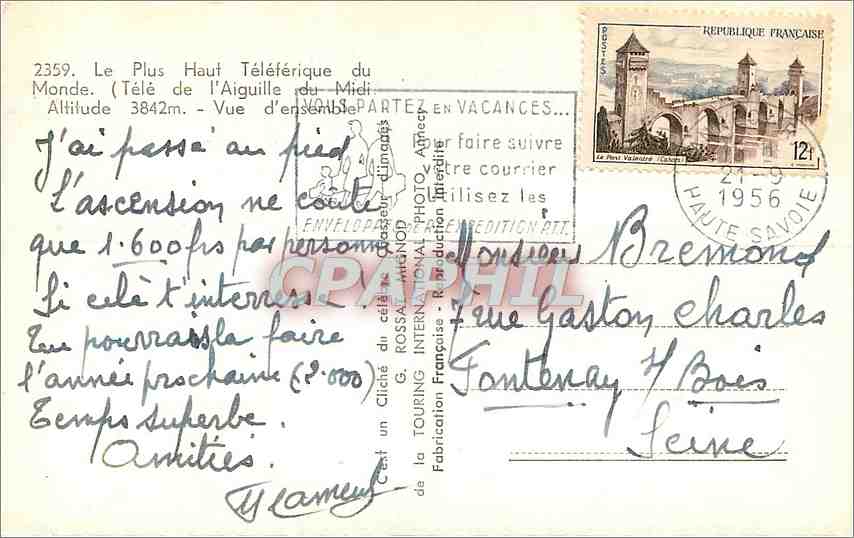 2359. Le Plus Haut Téléférique du
Monde. (Télé de l'Aiguille du Midi
Altitude 3842m. - Vue d'ensemble
J'ai passé au pied
L'ascension ne coute
que 1.600frs par personne
Si celà t'interresse.
Tu pourrais la faire
l'année prochaine (2.000)
Temps superbe.
Amitiés.
VOUS PARTEZ EN VACANCES...
Pour faire suivre
votre courrier
Utilisez les
ENVELOPPES DE RÉEXPÉDITION P.T.T.
C'est un Cliché du célèbre Chasseur d'images
G. ROSSAT-MIGNOD
de la TOURING INTERNATIONAL PHOTO, Annecy
Fabrication Française - Reproduction Interdite
REPUBLIQUE FRANÇAISE
POSTES
Le Pont Valentré (Cahors)
12f
21-9
1956
HAUTE SAVOIE
Monsieur Bremond
7 rue Gaston Charles
Fontenay s/ Bois
Seine
CPAPHIL